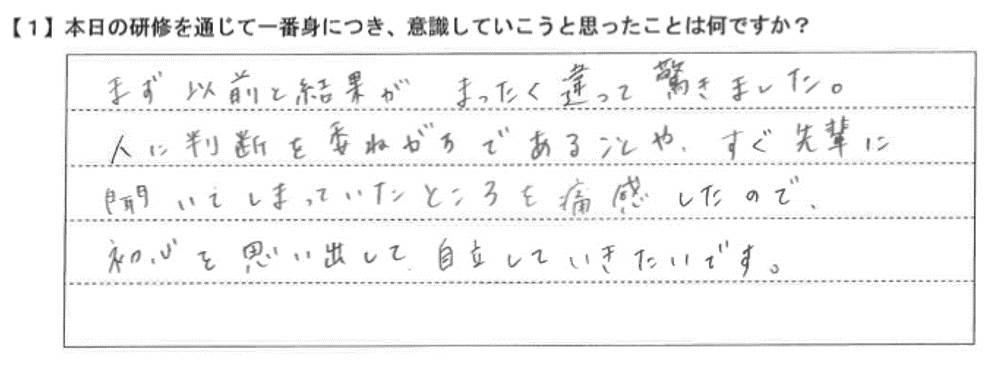 【1】本日の研修を通じて一番身につき、意識していこうと思ったことは何ですか？
まず以前と結果が まったく違って驚きました。
人に判断を委ねがちであることや、すぐ先輩に
聞いてしまっていたところを痛感したので、
初心を思い出して、自立していきたいです。